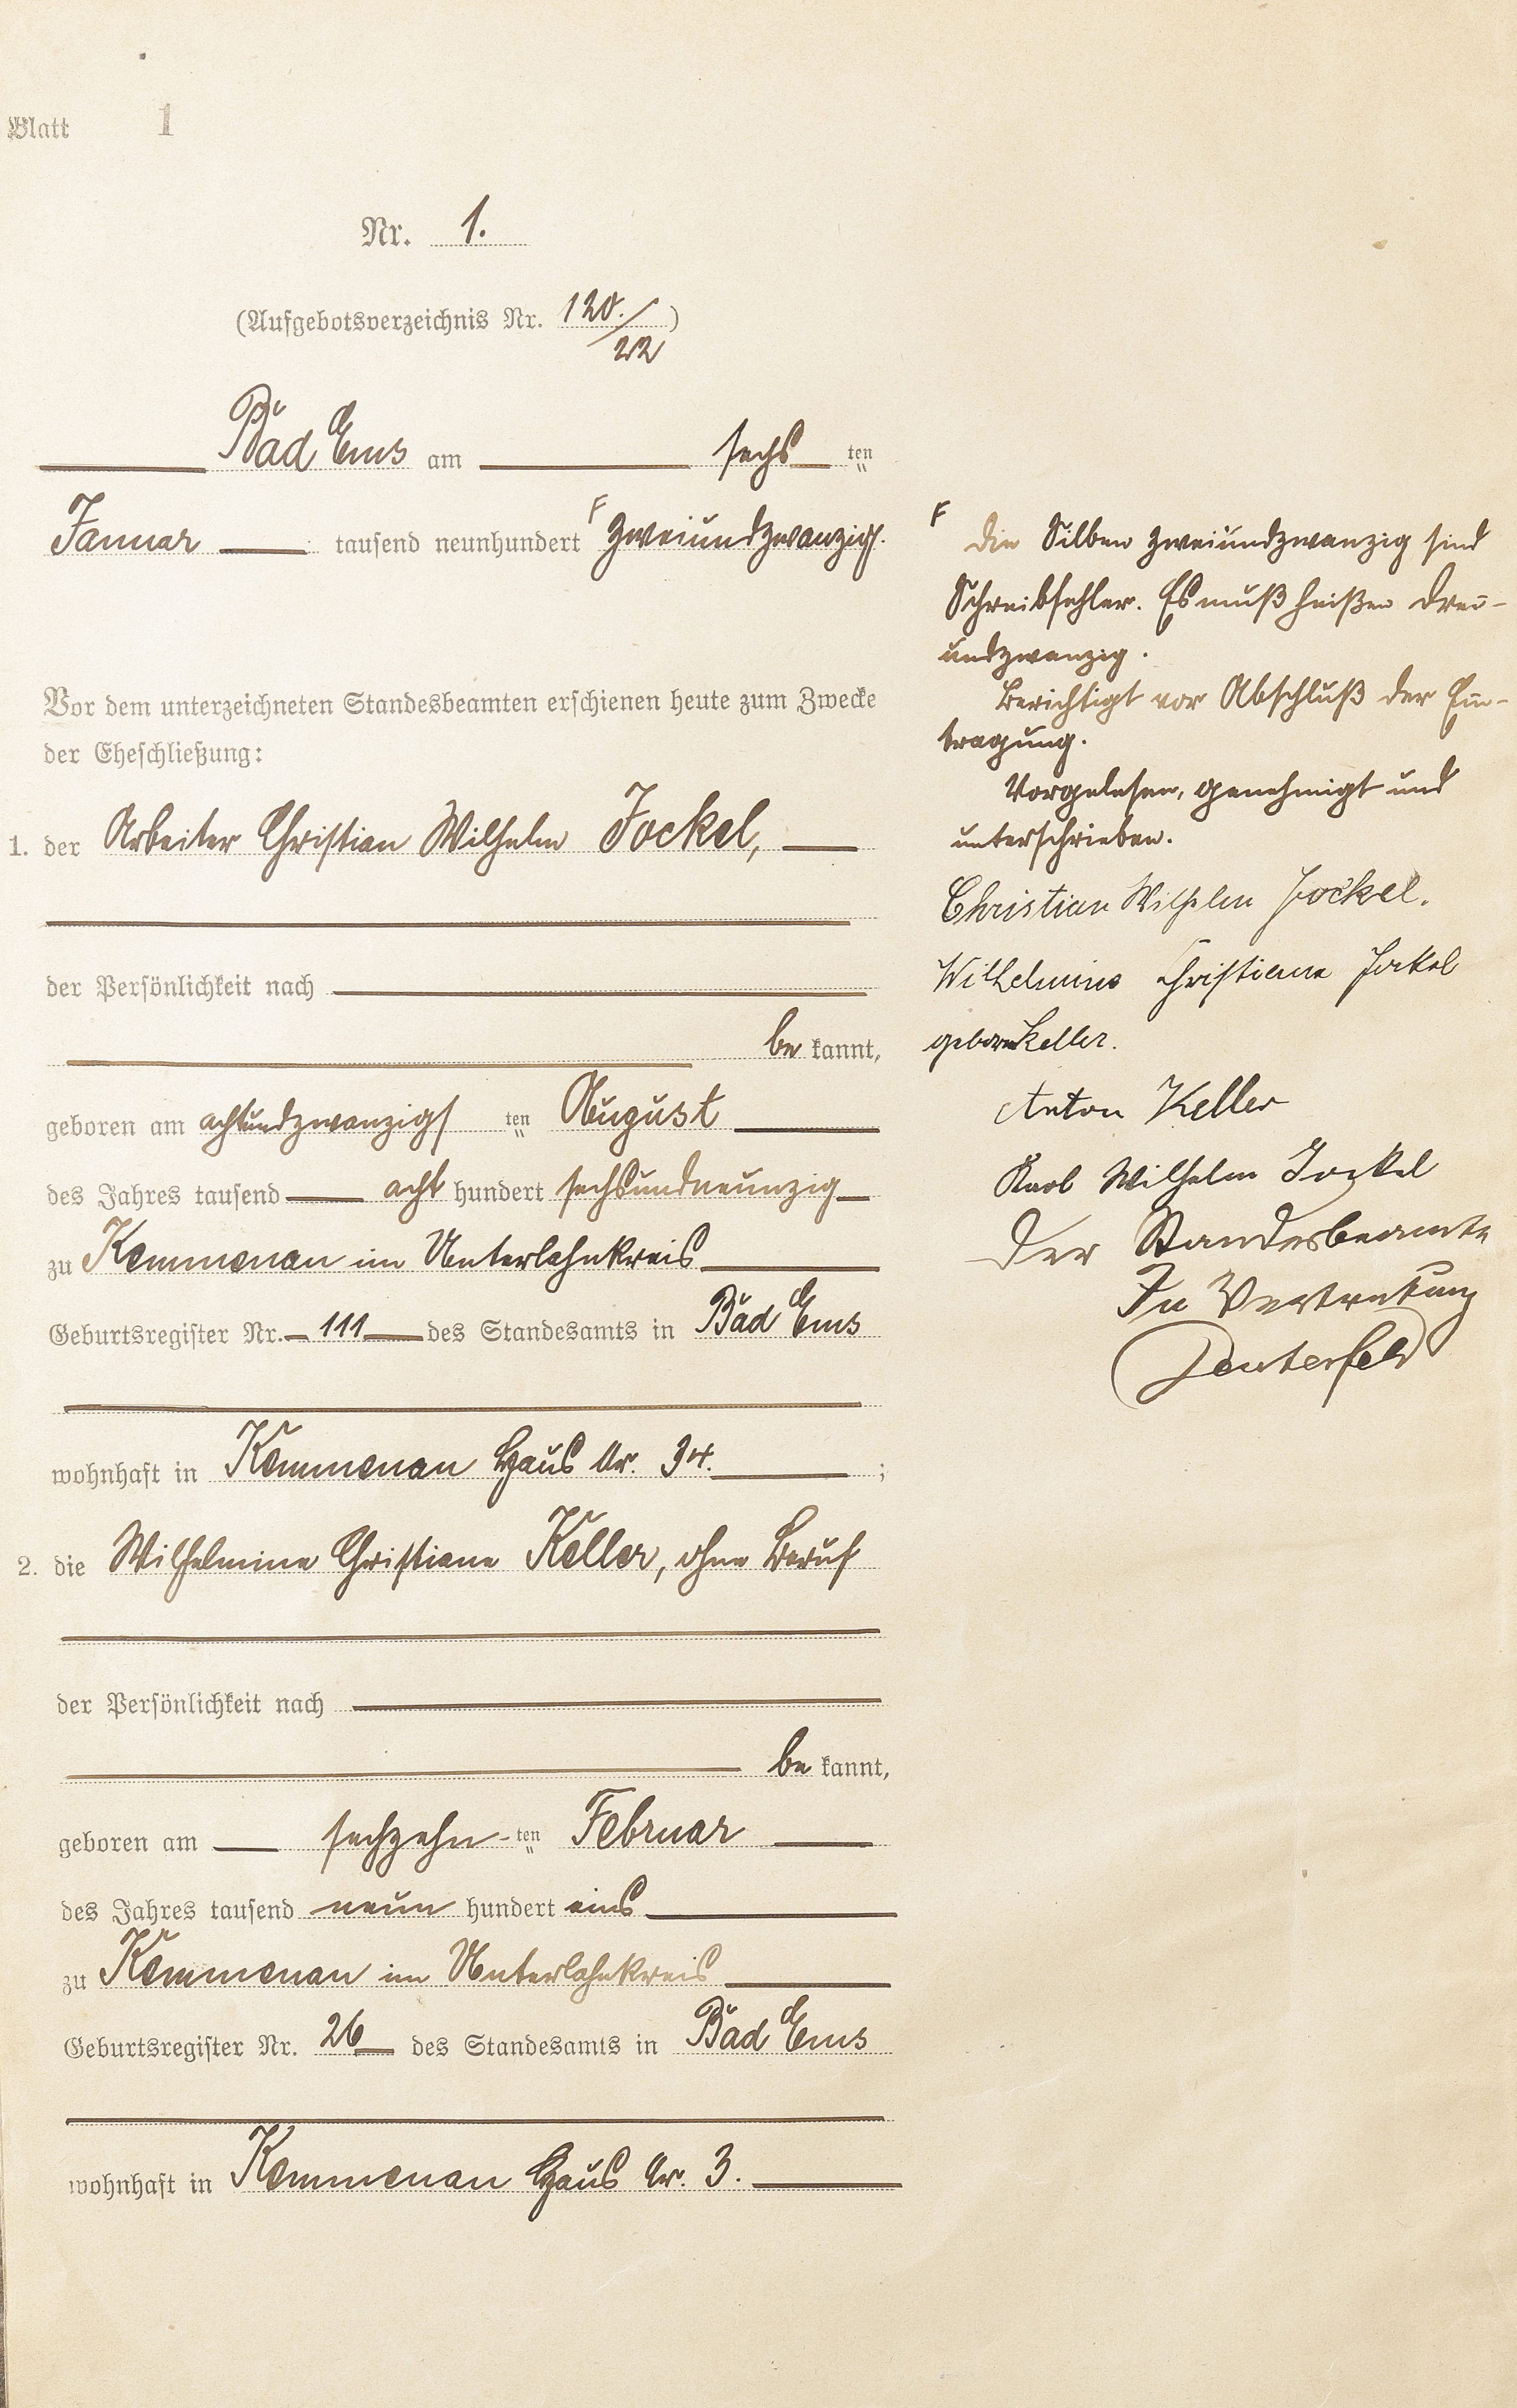 Blatt 1
Nr. 1.
(Aufgebotsverzeichnis Nr. 120./22)
Bad Ems am sechs ten
Januar tausend neunhundert F zweiundzwanzig.
Vor dem unterzeichneten Standesbeamten erschienen heute zum Zwecke
der Eheschließung:
1. der Arbeiter Christian Wilhelm Jockel,
der Persönlichkeit nach
be kannt,
geboren am achtundzwanzigs ten August
des Jahres tausend acht hundert sechsundneunzig
zu Kemmenau im Unterlahnkreis
Geburtsregister Nr. 111 des Standesamts in Bad Ems
wohnhaft in Kemmenau Haus Nr. 34. ;
2. die Wilhelmine Christiane Keller, ohne Beruf
der Persönlichkeit nach
be kannt,
geboren am sechzehn ten Februar
des Jahres tausend neun hundert eins
zu Kemmenau im Unterlahnkreis
Geburtsregister Nr. 26 des Standesamts in Bad Ems
wohnhaft in Kemmenau Haus Nr. 3.
F Die Silben zweiundzwanzig sind
Schreibfehler. Es muß heißen drei-
undzwanzig.
Berichtigt vor Abschluß der Ein-
tragung.
Vorgelesen, genehmigt und
unterschrieben.
Christian Wilhelm Jockel.
Wilhelmine Christiane Jockel
geborne Keller.
Anton Keller
Karl Wilhelm Jockel
Der Standesbeamte
In Vertretung